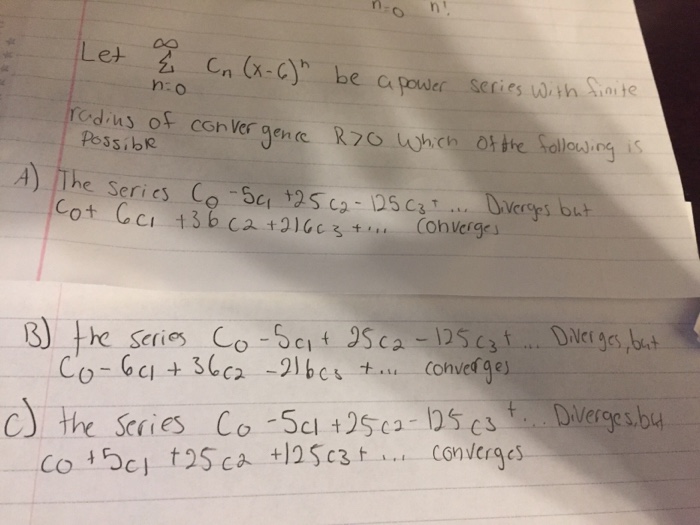 n=0 n!
Let ∞ Σ n=0 Cn (x-6)ⁿ be a power series with finite
radius of convergence R>0 which of the following is
possible
A) The series C0 -5c1 +25c2 - 125c3+ ... Diverges but
C0+ 6c1 +36c2 +216c3 +... Converges
B) the series C0 -5c1+ 25c2 -125c3+ ... Diverges, but
C0-6c1 + 36c2 -216c3 +... converges
C) the series C0 -5c1 +25c2- 125c3 +... Diverges, but
c0 +5c1 +25c2 +125c3+ ... converges